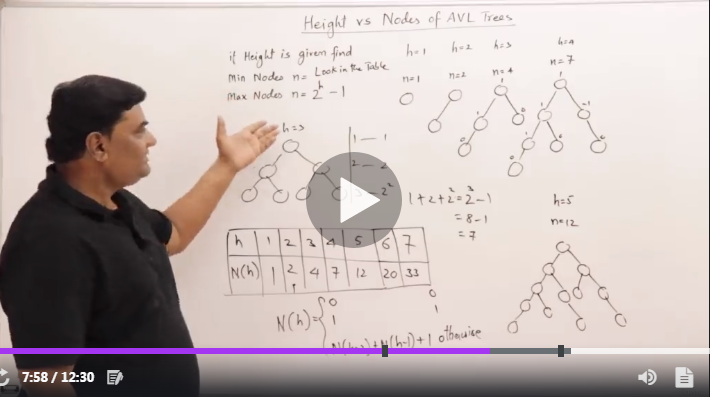 Height vs Nodes of AVL Trees
if Height is given find
Min Nodes n = Look in the Table
Max Nodes n = 2^h - 1
h=1 h=2 h=3 h=4
n=1 n=2 n=4 n=7
1
0 0
1
1 -1
1 0 0
0
h=3
1 — 1
2 — 2
3 — 2^2
1 + 2 + 2^2 = 2^3 - 1
= 8 - 1
= 7
h=5
n=12
h 1 2 3 4 5 6 7
N(h) 1 2 4 7 12 20 33
N(h) = { 0 0
1 1
N(h-2) + N(h-1) + 1 otherwise
7:58 / 12:30